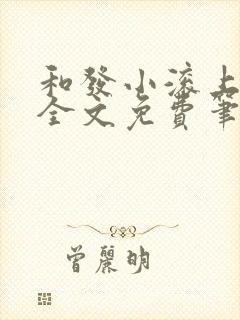 和發小滾上
全文免費筆
曾麗明